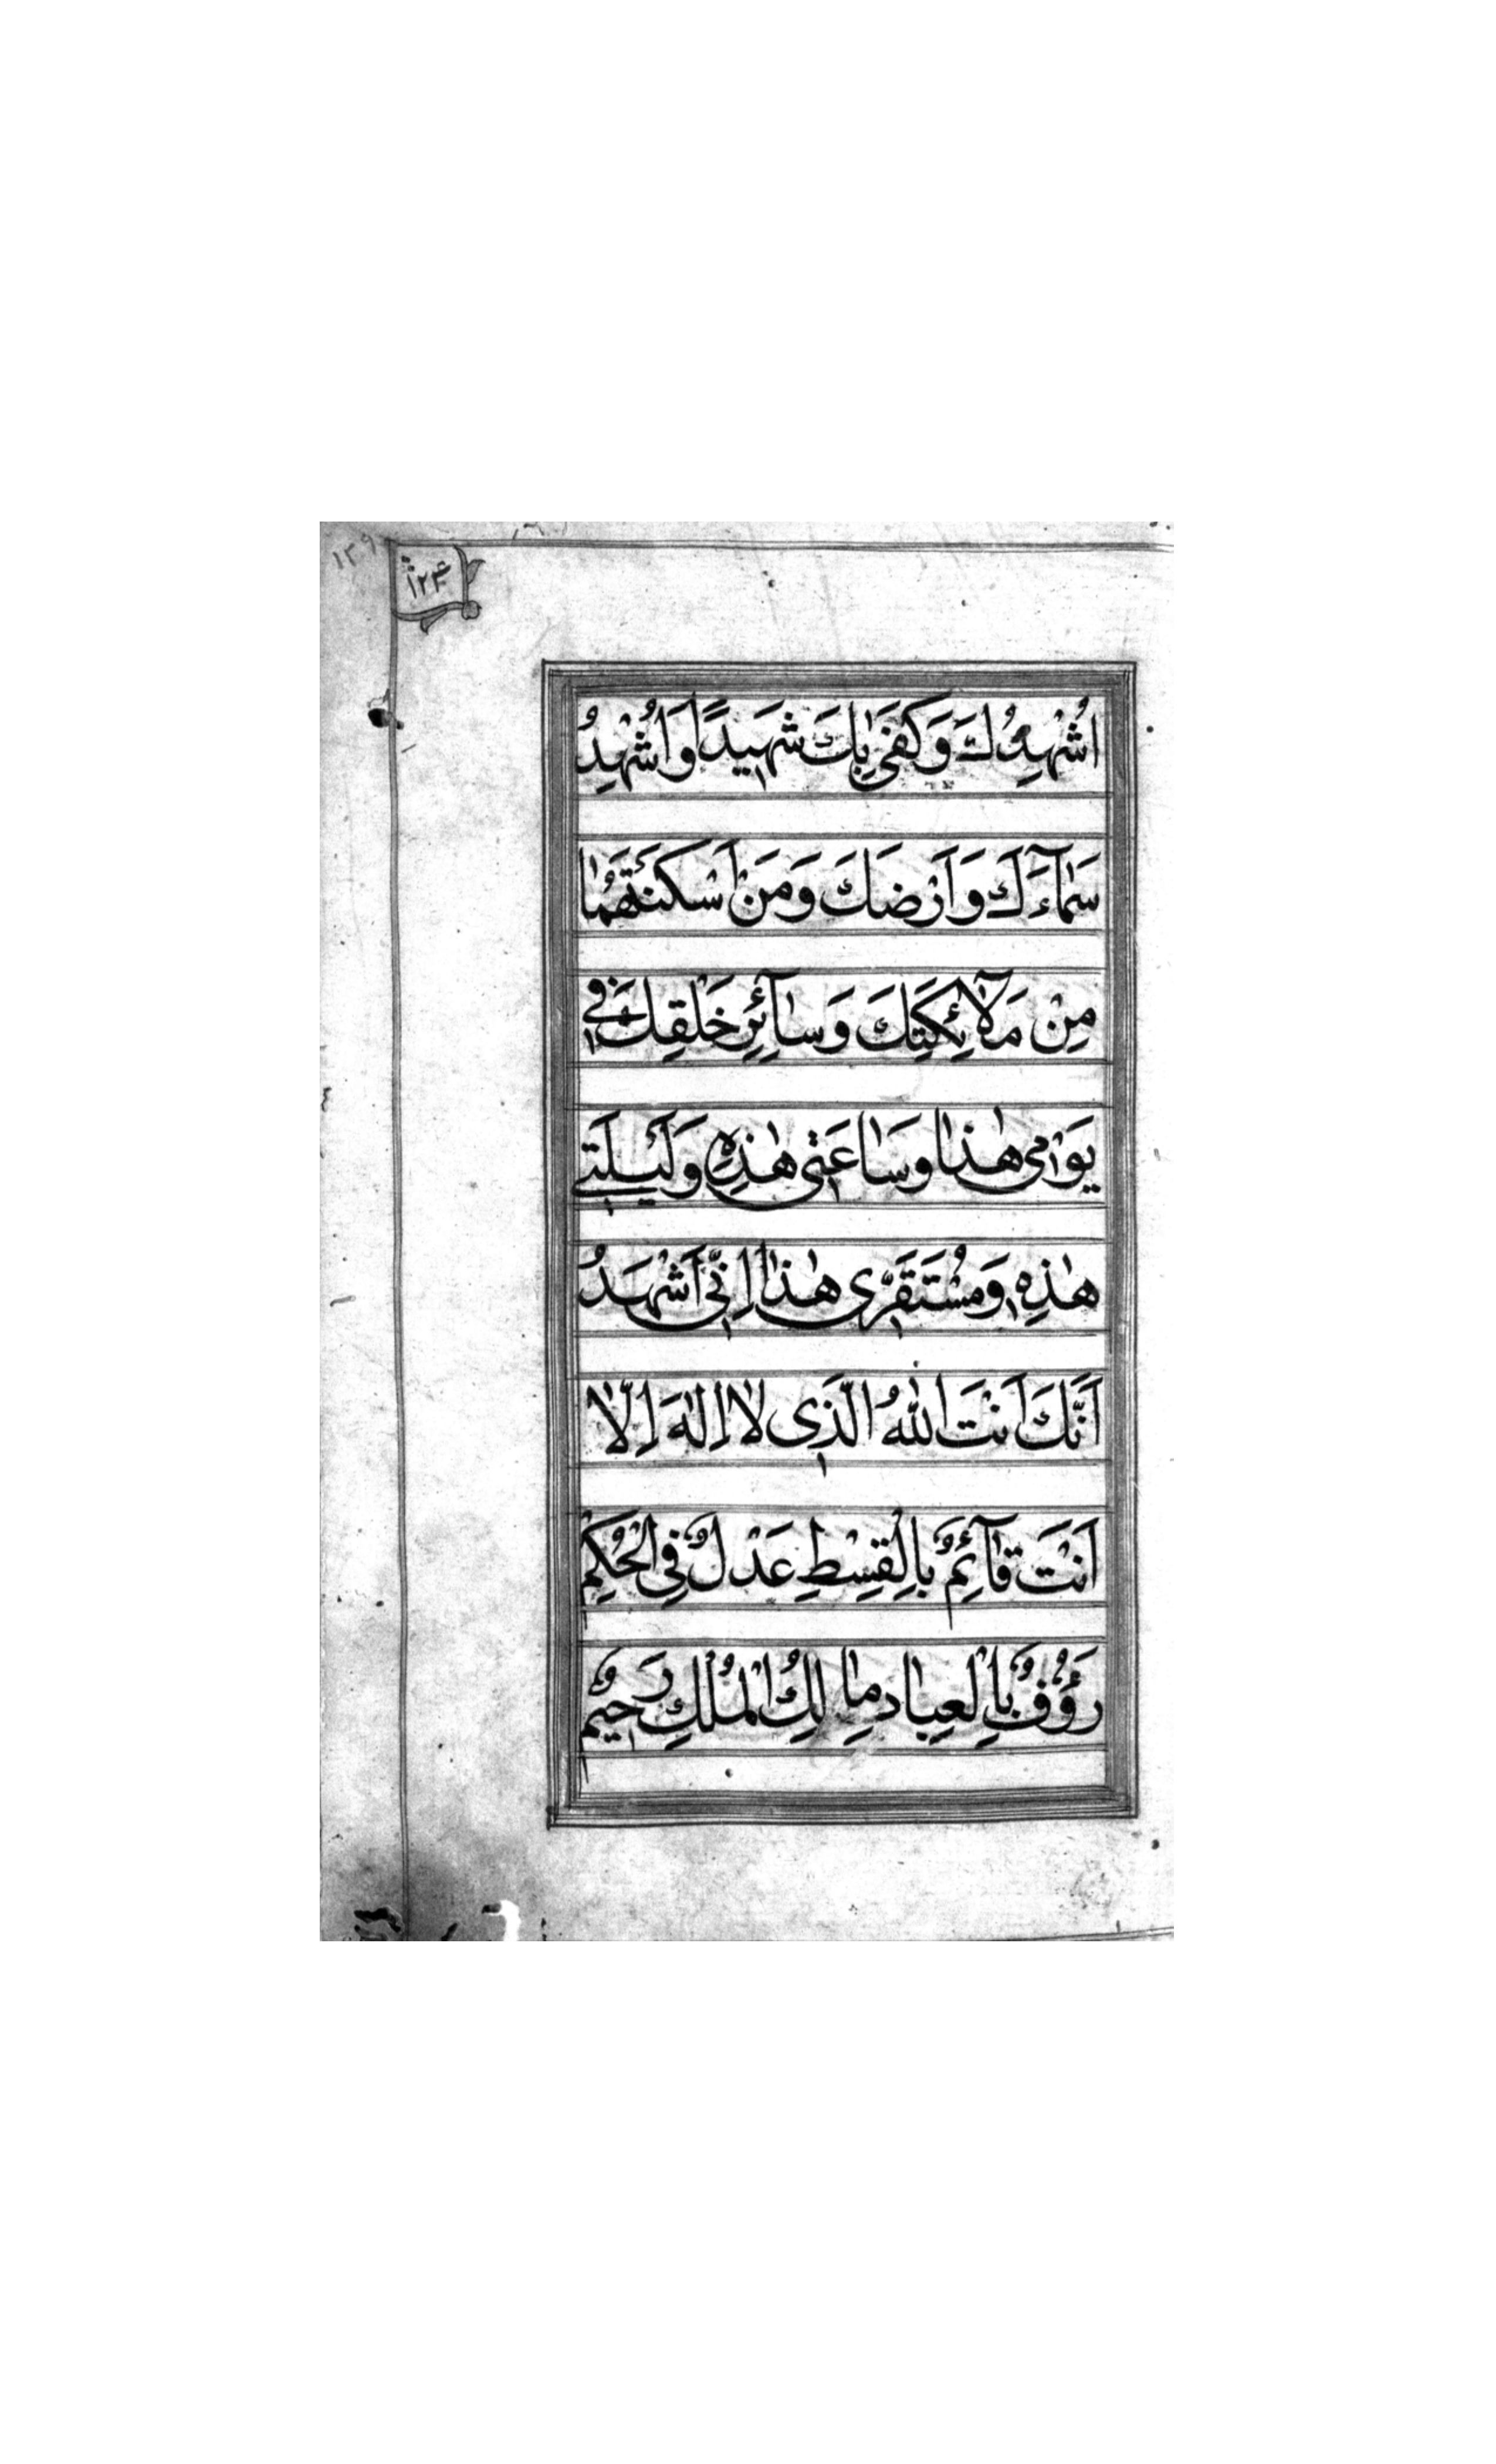 ١٢٩
١٢۴
اُشْهِدُكَ وَكَفىٰ بِكَ شَهيدًا وَاُشْهِدُ
سَمٰآءَكَ وَاَرْضَكَ وَمَنْ اَسْكَنْتَهُمٰا
مِنْ مَلاٰئِكَتِكَ وَسٰآئِرِ خَلْقِكَ فى
يَوْمى هٰذٰا وَسٰاعَتى هٰذِهِ وَلَيْلَتى
هٰذِهِ وَمُسْتَقَرّى هٰذٰا اِنّى اَشْهَدُ
اَنَّكَ اَنْتَ اللّٰهُ الَّذى لاٰ اِلٰهَ اِلّاٰ
اَنْتَ قٰآئِمٌ بِالْقِسْطِ عَدْلٌ فِى الْحُكْمِ
رَؤُفٌ بِالْعِبٰادِ مٰالِكُ الْمُلْكِ رَحيمٌ